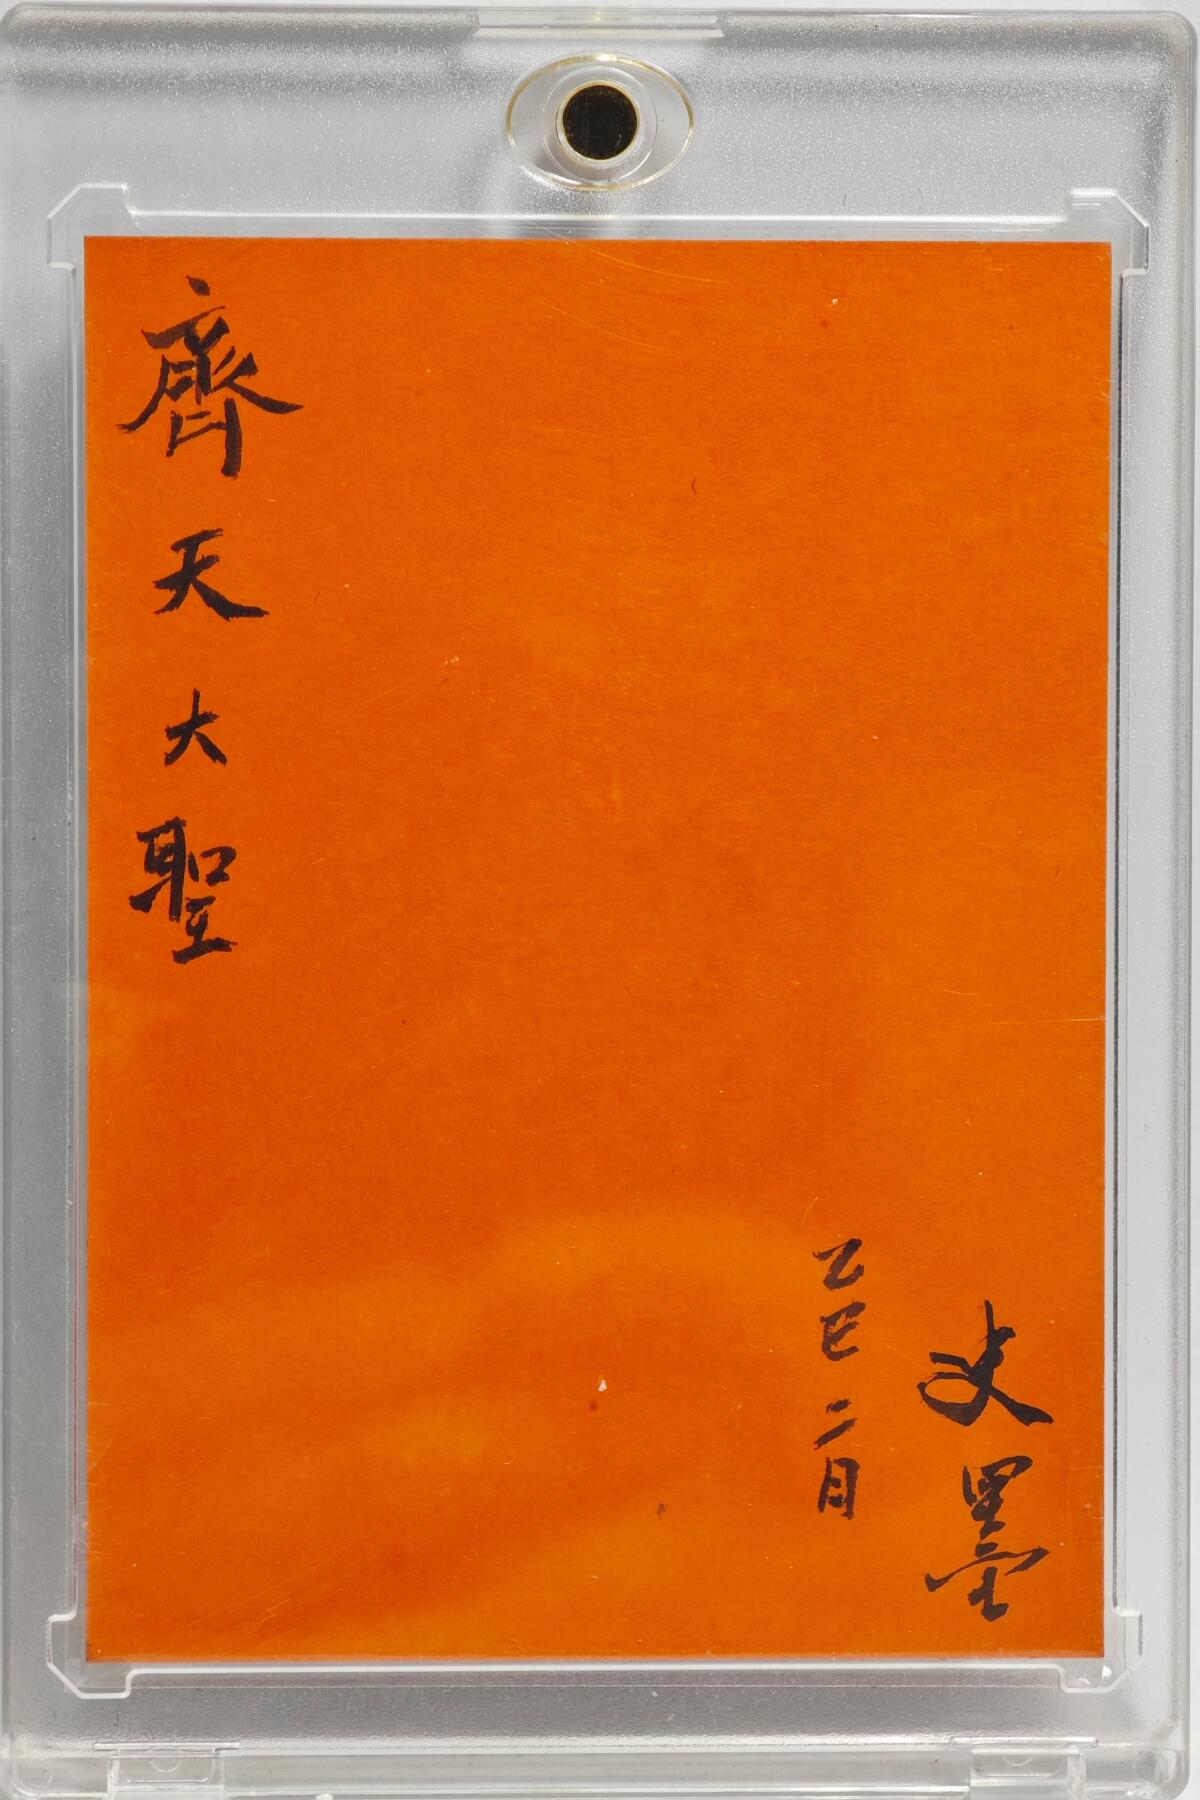 齊天大聖
乙巳二月
史墨